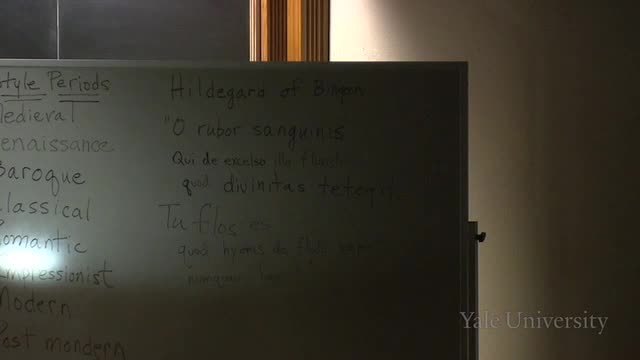 Style Periods
Medieval
Renaissance
Baroque
Classical
Romantic
Impressionist
Modern
Post mondern
Hildegard of Bingen
"O rubor sanguinis
Qui de excelso illo
quod divinitas tetegit.
Tu flos es
quod hyems de
nunquam
Yale University